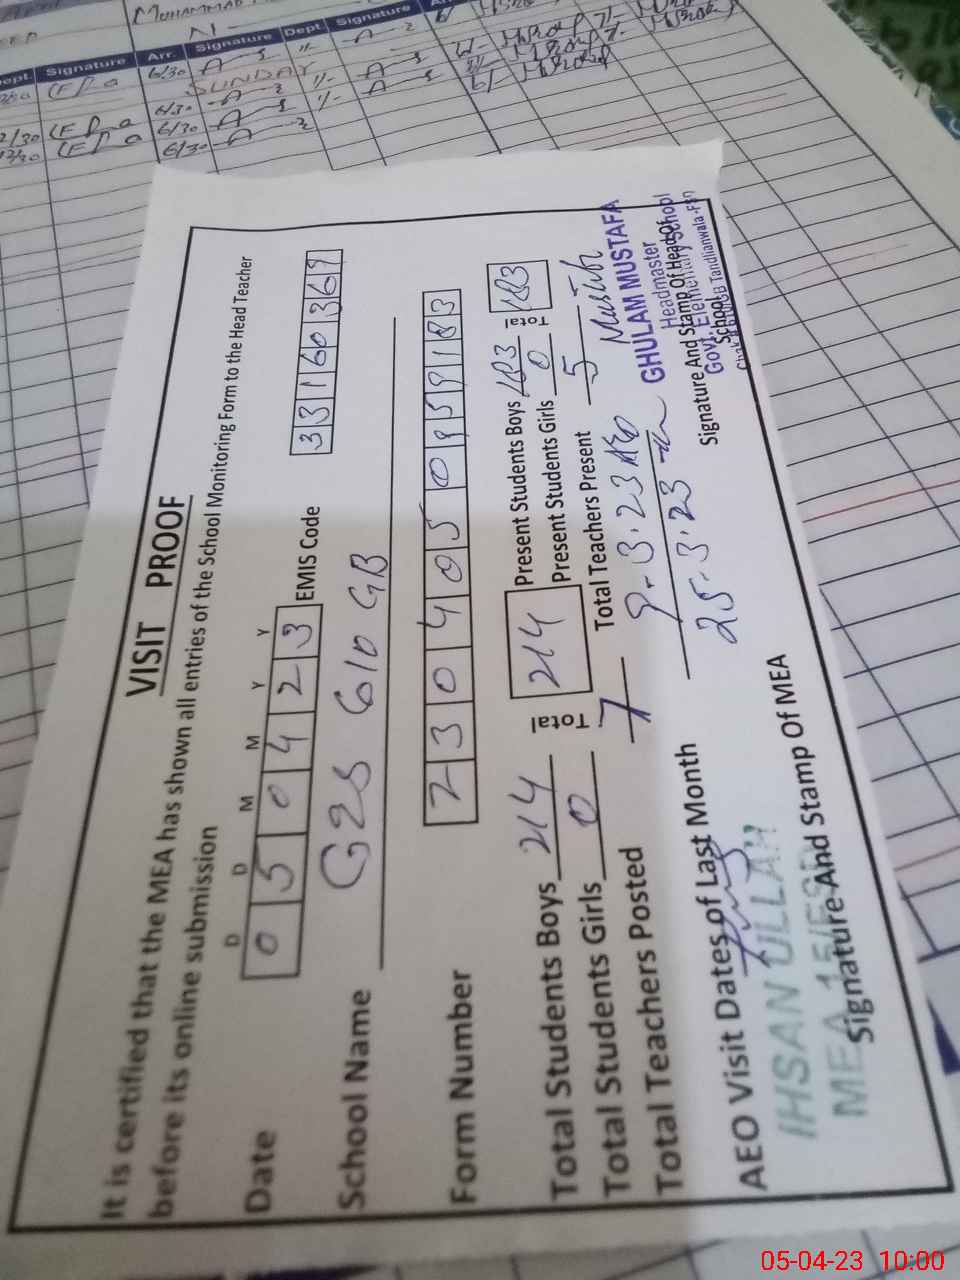 VISIT PROOF
It is certified that the MEA has shown all entries of the School Monitoring Form to the Head Teacher
before its online submission
D D M M Y Y
Date 0 5 0 4 2 3 EMIS Code 3 3 1 6 0 3 6 9
School Name GES 610 GB
Form Number 2 3 0 4 0 5 0 8 5 9 1 8 3
Total Students Boys 214 Total 214 Present Students Boys 183 Total 183
Total Students Girls 0 Present Students Girls 0
Total Teachers Posted 7 Total Teachers Present 5
AEO Visit Dates of Last Month 9-3-23 AEO
25-3-23
GHULAM MUSTAFA
Headmaster
Govt. Elementary School
Tandlianwala-Fsd
Signature And Stamp Of Head Of
School
IHSAN ULLAH
MEA 15/FSD
Signature And Stamp Of MEA
MUHAMMAD
Dept. Signature Arr. Signature Dept. Signature
6/30
SUNDAY
6/30
12/30 6/30
12/30 6/30
05-04-23 10:00